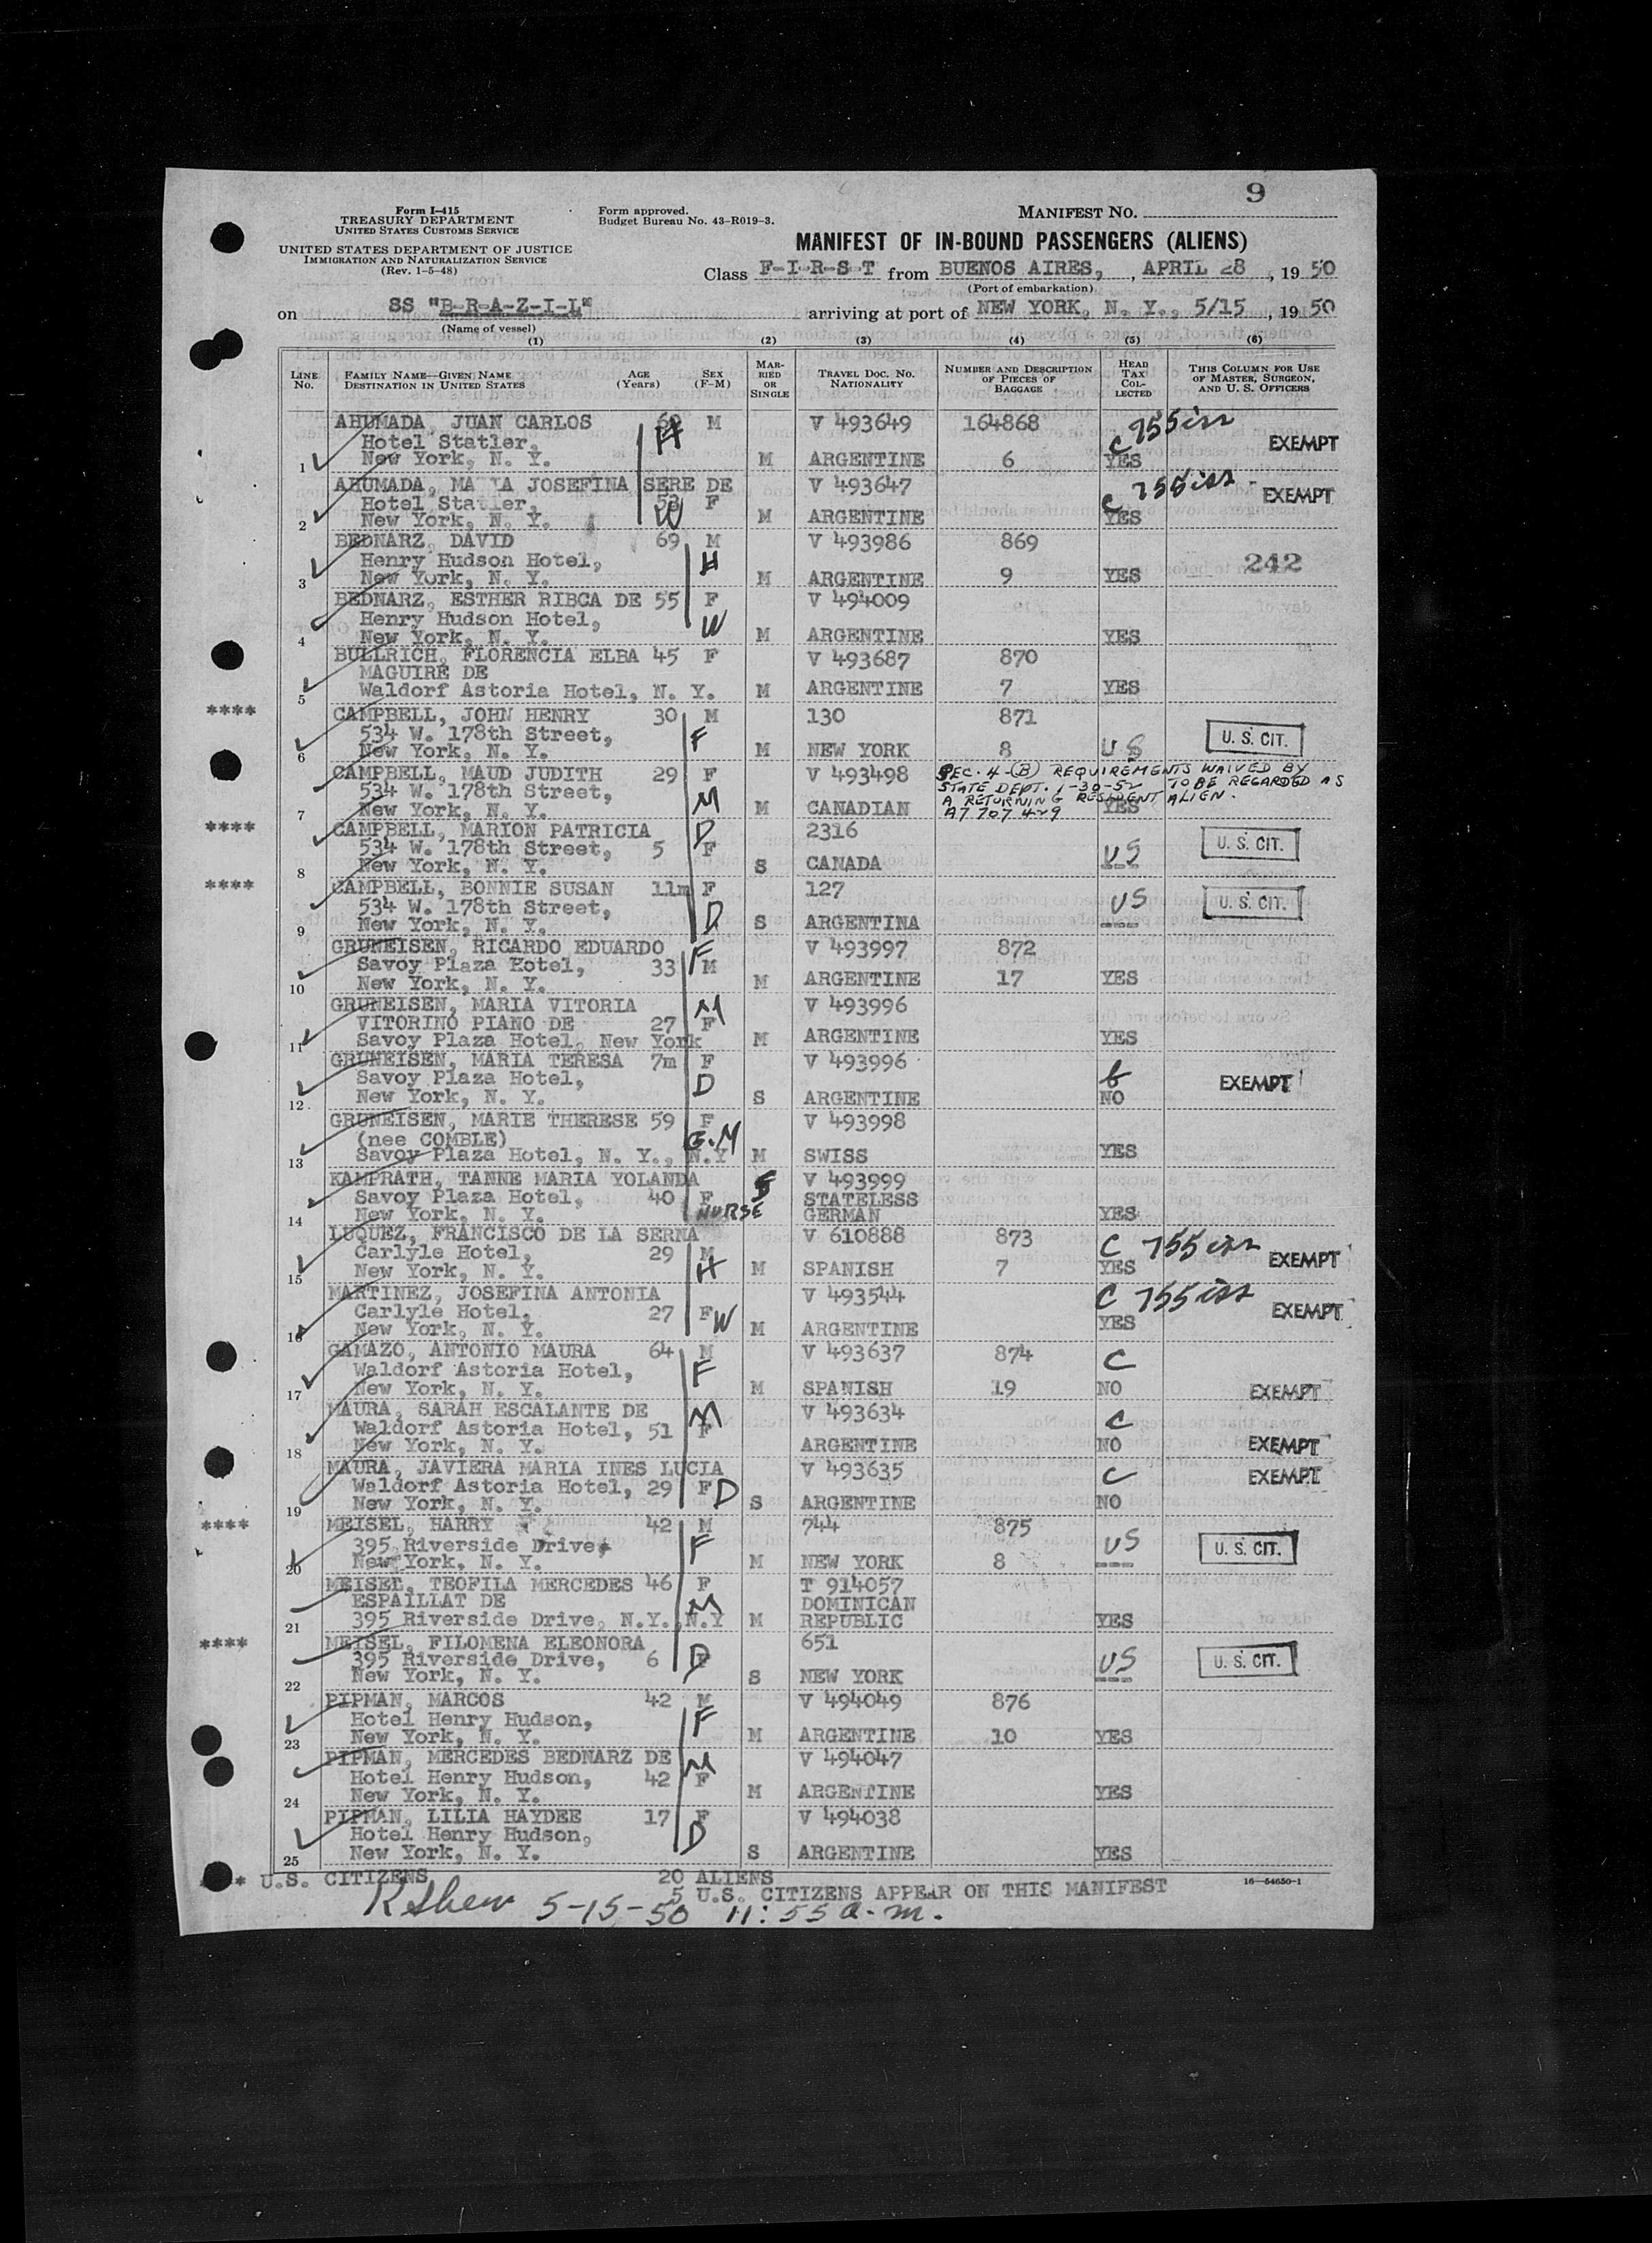 9
Form I-415
TREASURY DEPARTMENT
UNITED STATES CUSTOMS SERVICE
Form approved.
Budget Bureau No. 43-R019-3.
MANIFEST NO.
UNITED STATES DEPARTMENT OF JUSTICE
IMMIGRATION AND NATURALIZATION SERVICE
(Rev. 1-5-48)
MANIFEST OF IN-BOUND PASSENGERS (ALIENS)
Class F-I-R-S-T from BUENOS AIRES, , APRIL 28 , 19 50
(Port of embarkation)
on SS "B-R-A-Z-I-L" arriving at port of NEW YORK, N. Y., 5/15 , 19 50
(Name of vessel)
(1) (2) (3) (4) (5) (6)
LINE NO. FAMILY NAME—GIVEN NAME DESTINATION IN UNITED STATES AGE (Years) SEX (F-M) MARRIED OR SINGLE TRAVEL DOC. NO. NATIONALITY NUMBER AND DESCRIPTION OF PIECES OF BAGGAGE HEAD TAX COLLECTED THIS COLUMN FOR USE OF MASTER, SURGEON, AND U. S. OFFICERS
AHUMADA, JUAN CARLOS M V 493649 164868 C 755 iss
Hotel Statler, H EXEMPT
1 New York, N. Y. M ARGENTINE 6 YES
AHUMADA, MARIA JOSEFINA SERE DE V 493647 C 755 iss
Hotel Statler, 53 F EXEMPT
2 New York, N. Y. W M ARGENTINE YES
BEDNARZ, DAVID 69 M V 493986 869
Henry Hudson Hotel, H 242
3 New York, N. Y. M ARGENTINE 9 YES
BEDNARZ, ESTHER RIBCA DE 55 F V 494009
Henry Hudson Hotel, W
4 New York, N. Y. M ARGENTINE YES
BULLRICH, FLORENCIA ELBA 45 F V 493687 870
MAGUIRE DE
5 Waldorf Astoria Hotel, N. Y. M ARGENTINE 7 YES
**** CAMPBELL, JOHN HENRY 30 M 130 871
534 W. 178th Street, F U. S. CIT.
6 New York, N. Y. M NEW YORK 8 US
CAMPBELL, MAUD JUDITH 29 F V 493498 SEC. 4-(B) REQUIREMENTS WAIVED BY
534 W. 178th Street, M STATE DEPT. 1-30-52 TO BE REGARDED AS
7 New York, N. Y. M CANADIAN A RETURNING RESIDENT ALIEN. YES
A7 707 429
**** CAMPBELL, MARION PATRICIA D 2316
534 W. 178th Street, 5 F US U. S. CIT.
8 New York, N. Y. S CANADA ---
**** CAMPBELL, BONNIE SUSAN 11m F 127
534 W. 178th Street, D US U. S. CIT.
9 New York, N. Y. S ARGENTINA ---
GRUNEISEN, RICARDO EDUARDO F V 493997 872
Savoy Plaza Hotel, 33 M
10 New York, N. Y. M ARGENTINE 17 YES
GRUNEISEN, MARIA VITORIA M V 493996
VITORINO PIANO DE 27 F
11 Savoy Plaza Hotel, New York M ARGENTINE YES
GRUNEISEN, MARIA TERESA 7m F V 493996
Savoy Plaza Hotel, D b EXEMPT
12 New York, N. Y. S ARGENTINE NO
GRUNEISEN, MARIE THERESE 59 F V 493998
(nee COMBLE) G.M
13 Savoy Plaza Hotel, N. Y., N.Y M SWISS YES
KAMPRATH, TANNE MARIA YOLANDA S V 493999
Savoy Plaza Hotel, 40 F STATELESS
14 New York, N. Y. NURSE GERMAN YES
LUQUEZ, FRANCISCO DE LA SERNA V 610888 873 C 755 iss
Carlyle Hotel, 29 M EXEMPT
15 New York, N. Y. H M SPANISH 7 YES
MARTINEZ, JOSEFINA ANTONIA V 493544 C 755 iss
Carlyle Hotel, 27 F W EXEMPT
16 New York, N. Y. M ARGENTINE YES
GAMAZO, ANTONIO MAURA 64 M V 493637 874 C
Waldorf Astoria Hotel, F
17 New York, N. Y. M SPANISH 19 NO EXEMPT
MAURA, SARAH ESCALANTE DE M V 493634 C
Waldorf Astoria Hotel, 51 F
18 New York, N. Y. ARGENTINE NO EXEMPT
MAURA, JAVIERA MARIA INES LUCIA V 493635 C EXEMPT
Waldorf Astoria Hotel, 29 F D
19 New York, N. Y. S ARGENTINE NO
**** MEISEL, HARRY 42 M 744 875
395 Riverside Drive, F US U. S. CIT.
20 New York, N. Y. M NEW YORK 8 ---
MEISEL, TEOFILA MERCEDES 46 F T 914057
ESPAILLAT DE M DOMINICAN
21 395 Riverside Drive, N.Y., N.Y M REPUBLIC YES
**** MEISEL, FILOMENA ELEONORA 651
395 Riverside Drive, 6 F D US U. S. CIT.
22 New York, N. Y. S NEW YORK ---
PIPMAN, MARCOS 42 M V 494049 876
Hotel Henry Hudson, F
23 New York, N. Y. M ARGENTINE 10 YES
PIPMAN, MERCEDES BEDNARZ DE M V 494047
Hotel Henry Hudson, 42 F
24 New York, N. Y. M ARGENTINE YES
PIPMAN, LILIA HAYDEE 17 F V 494038
Hotel Henry Hudson, D
25 New York, N. Y. S ARGENTINE YES
* U.S. CITIZENS 20 ALIENS 16—54650-1
5 U.S. CITIZENS APPEAR ON THIS MANIFEST
5-15-50 11:55 a.m.